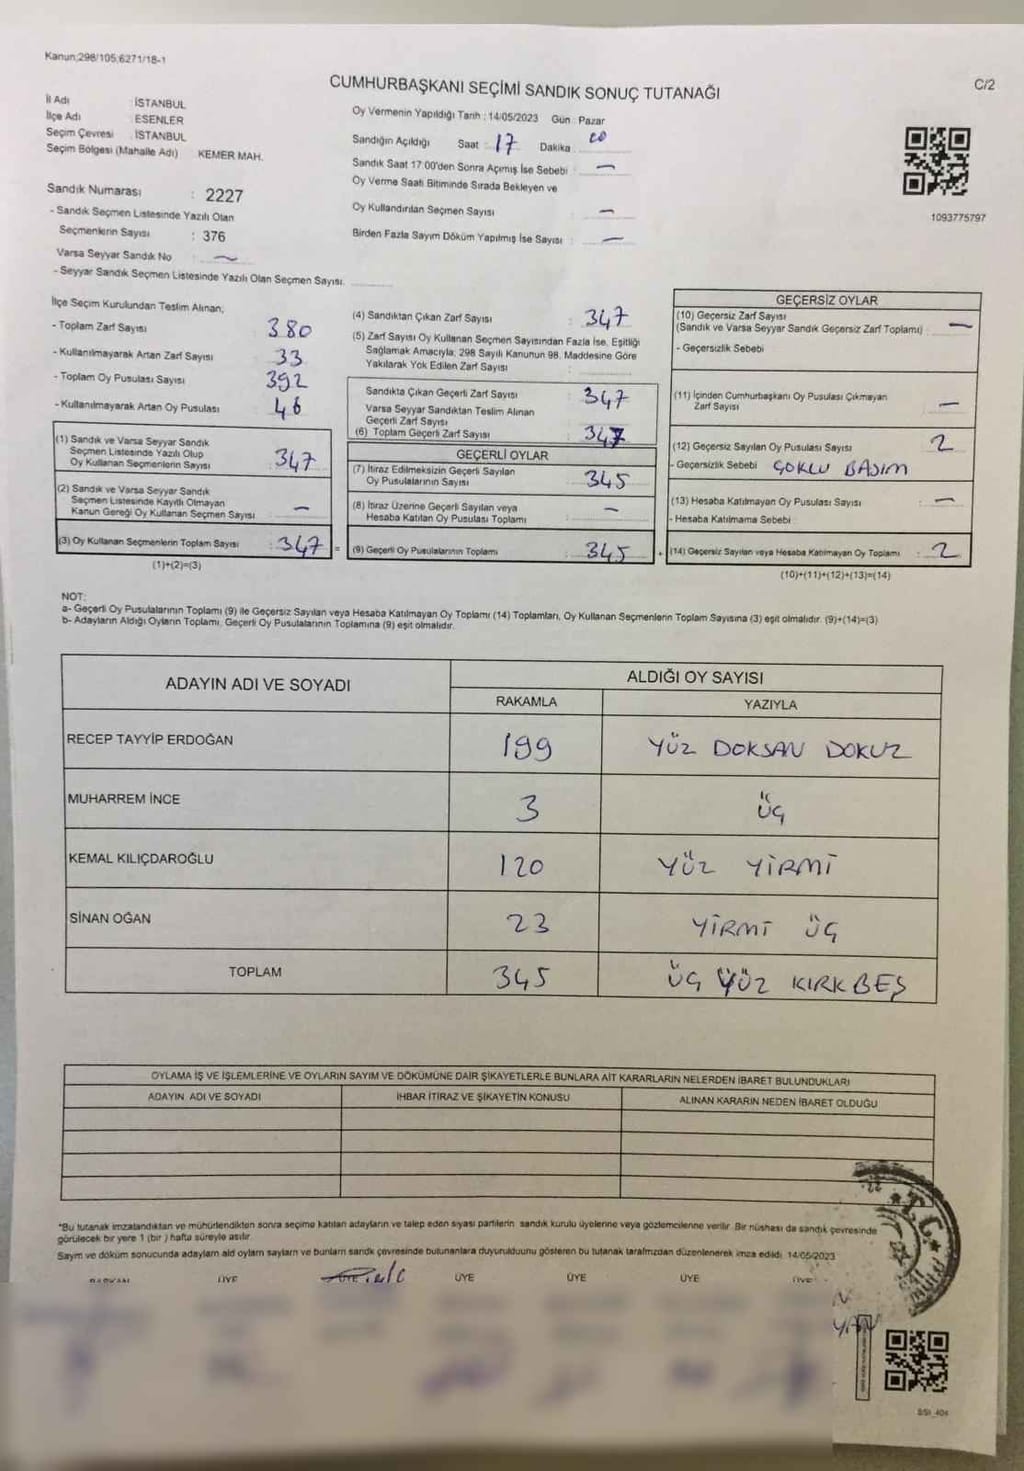 Kanun;298/105;6271/18-1
CUMHURBAŞKANI SEÇİMİ SANDIK SONUÇ TUTANAĞI
C/2
İl Adı : İSTANBUL
İlçe Adı : ESENLER
Seçim Çevresi : İSTANBUL
Seçim Bölgesi (Mahalle Adı) KEMER MAH.
Sandık Numarası : 2227
- Sandık Seçmen Listesinde Yazılı Olan
Seçmenlerin Sayısı : 376
Varsa Seyyar Sandık No : —
- Seyyar Sandık Seçmen Listesinde Yazılı Olan Seçmen Sayısı:
Oy Vermenin Yapıldığı Tarih : 14/05/2023 Gün : Pazar
Sandığın Açıldığı Saat : 17 Dakika : 00
Sandık Saat 17:00'den Sonra Açımış İse Sebebi : —
Oy Verme Saati Bitiminde Sırada Bekleyen ve
Oy Kullandırılan Seçmen Sayısı : —
Birden Fazla Sayım Döküm Yapılmış İse Sayısı : —
1093775797
İlçe Seçim Kurulundan Teslim Alınan;
- Toplam Zarf Sayısı 380
- Kullanılmayarak Artan Zarf Sayısı 33
- Toplam Oy Pusulası Sayısı 392
- Kullanılmayarak Artan Oy Pusulası 46
(1) Sandık ve Varsa Seyyar Sandık
Seçmen Listesinde Yazılı Olup
Oy Kullanan Seçmenlerin Sayısı : 347
(2) Sandık ve Varsa Seyyar Sandık
Seçmen Listesinde Kayıtlı Olmayan
Kanun Gereği Oy Kullanan Seçmen Sayısı —
(3) Oy Kullanan Seçmenlerin Toplam Sayısı : 347 =
(1)+(2)=(3)
(4) Sandıktan Çıkan Zarf Sayısı : 347
(5) Zarf Sayısı Oy Kullanan Seçmen Sayısından Fazla İse, Eşitliği
Sağlamak Amacıyla; 298 Sayılı Kanunun 98. Maddesine Göre
Yakılarak Yok Edilen Zarf Sayısı :
Sandıkta Çıkan Geçerli Zarf Sayısı : 347
Varsa Seyyar Sandıktan Teslim Alınan
Geçerli Zarf Sayısı
(6) Toplam Geçerli Zarf Sayısı : 347
GEÇERLİ OYLAR
(7) İtiraz Edilmeksizin Geçerli Sayılan
Oy Pusulalarının Sayısı : 345
(8) İtiraz Üzerine Geçerli Sayılan veya
Hesaba Katılan Oy Pusulası Toplamı : —
(9) Geçerli Oy Pusulalarının Toplamı : 345 +
GEÇERSİZ OYLAR
(10) Geçersiz Zarf Sayısı
(Sandık ve Varsa Seyyar Sandık Geçersiz Zarf Toplamı) —
- Geçersizlik Sebebi
(11) İçinden Cumhurbaşkanı Oy Pusulası Çıkmayan
Zarf Sayısı : —
(12) Geçersiz Sayılan Oy Pusulası Sayısı : 2
- Geçersizlik Sebebi ÇOKLU BASIM
(13) Hesaba Katılmayan Oy Pusulası Sayısı : —
- Hesaba Katılmama Sebebi :
(14) Geçersiz Sayılan veya Hesaba Katılmayan Oy Toplamı : 2
(10)+(11)+(12)+(13)=(14)
NOT:
a- Geçerli Oy Pusulalarının Toplamı (9) ile Geçersiz Sayılan veya Hesaba Katılmayan Oy Toplamı (14) Toplamları, Oy Kullanan Seçmenlerin Toplam Sayısına (3) eşit olmalıdır. (9)+(14)=(3)
b- Adayların Aldığı Oyların Toplamı, Geçerli Oy Pusulalarının Toplamına (9) eşit olmalıdır.
ADAYIN ADI VE SOYADI ALDIĞI OY SAYISI
RAKAMLA YAZIYLA
RECEP TAYYİP ERDOĞAN 199 YÜZ DOKSAN DOKUZ
MUHARREM İNCE 3 ÜÇ
KEMAL KILIÇDAROĞLU 120 YÜZ YİRMİ
SİNAN OĞAN 23 YİRMİ ÜÇ
TOPLAM 345 ÜÇ YÜZ KIRK BEŞ
OYLAMA İŞ VE İŞLEMLERİNE VE OYLARIN SAYIM VE DÖKÜMÜNE DAİR ŞİKAYETLERLE BUNLARA AİT KARARLARIN NELERDEN İBARET BULUNDUKLARI
ADAYIN ADI VE SOYADI İHBAR İTİRAZ VE ŞİKAYETİN KONUSU ALINAN KARARIN NEDEN İBARET OLDUĞU
*Bu tutanak imzalandıktan ve mühürlendikten sonra seçime katılan adayların ve talep eden siyasi partilerin sandık kurulu üyelerine veya gözlemcilerine verilir. Bir nüshası da sandık çevresinde
görülecek bir yere 1 (bir ) hafta süreyle asılır.
Sayım ve döküm sonucunda adayların aldı oyların sayların ve bunların sandk çevresinde bulunanlara duyurulduunu gösteren bu tutanak tarafmzdan düzenlenerek imza edildi. 14/05/2023
BAŞKAN ÜYE ÜYE ÜYE ÜYE ÜYE ÜYE
T.C.